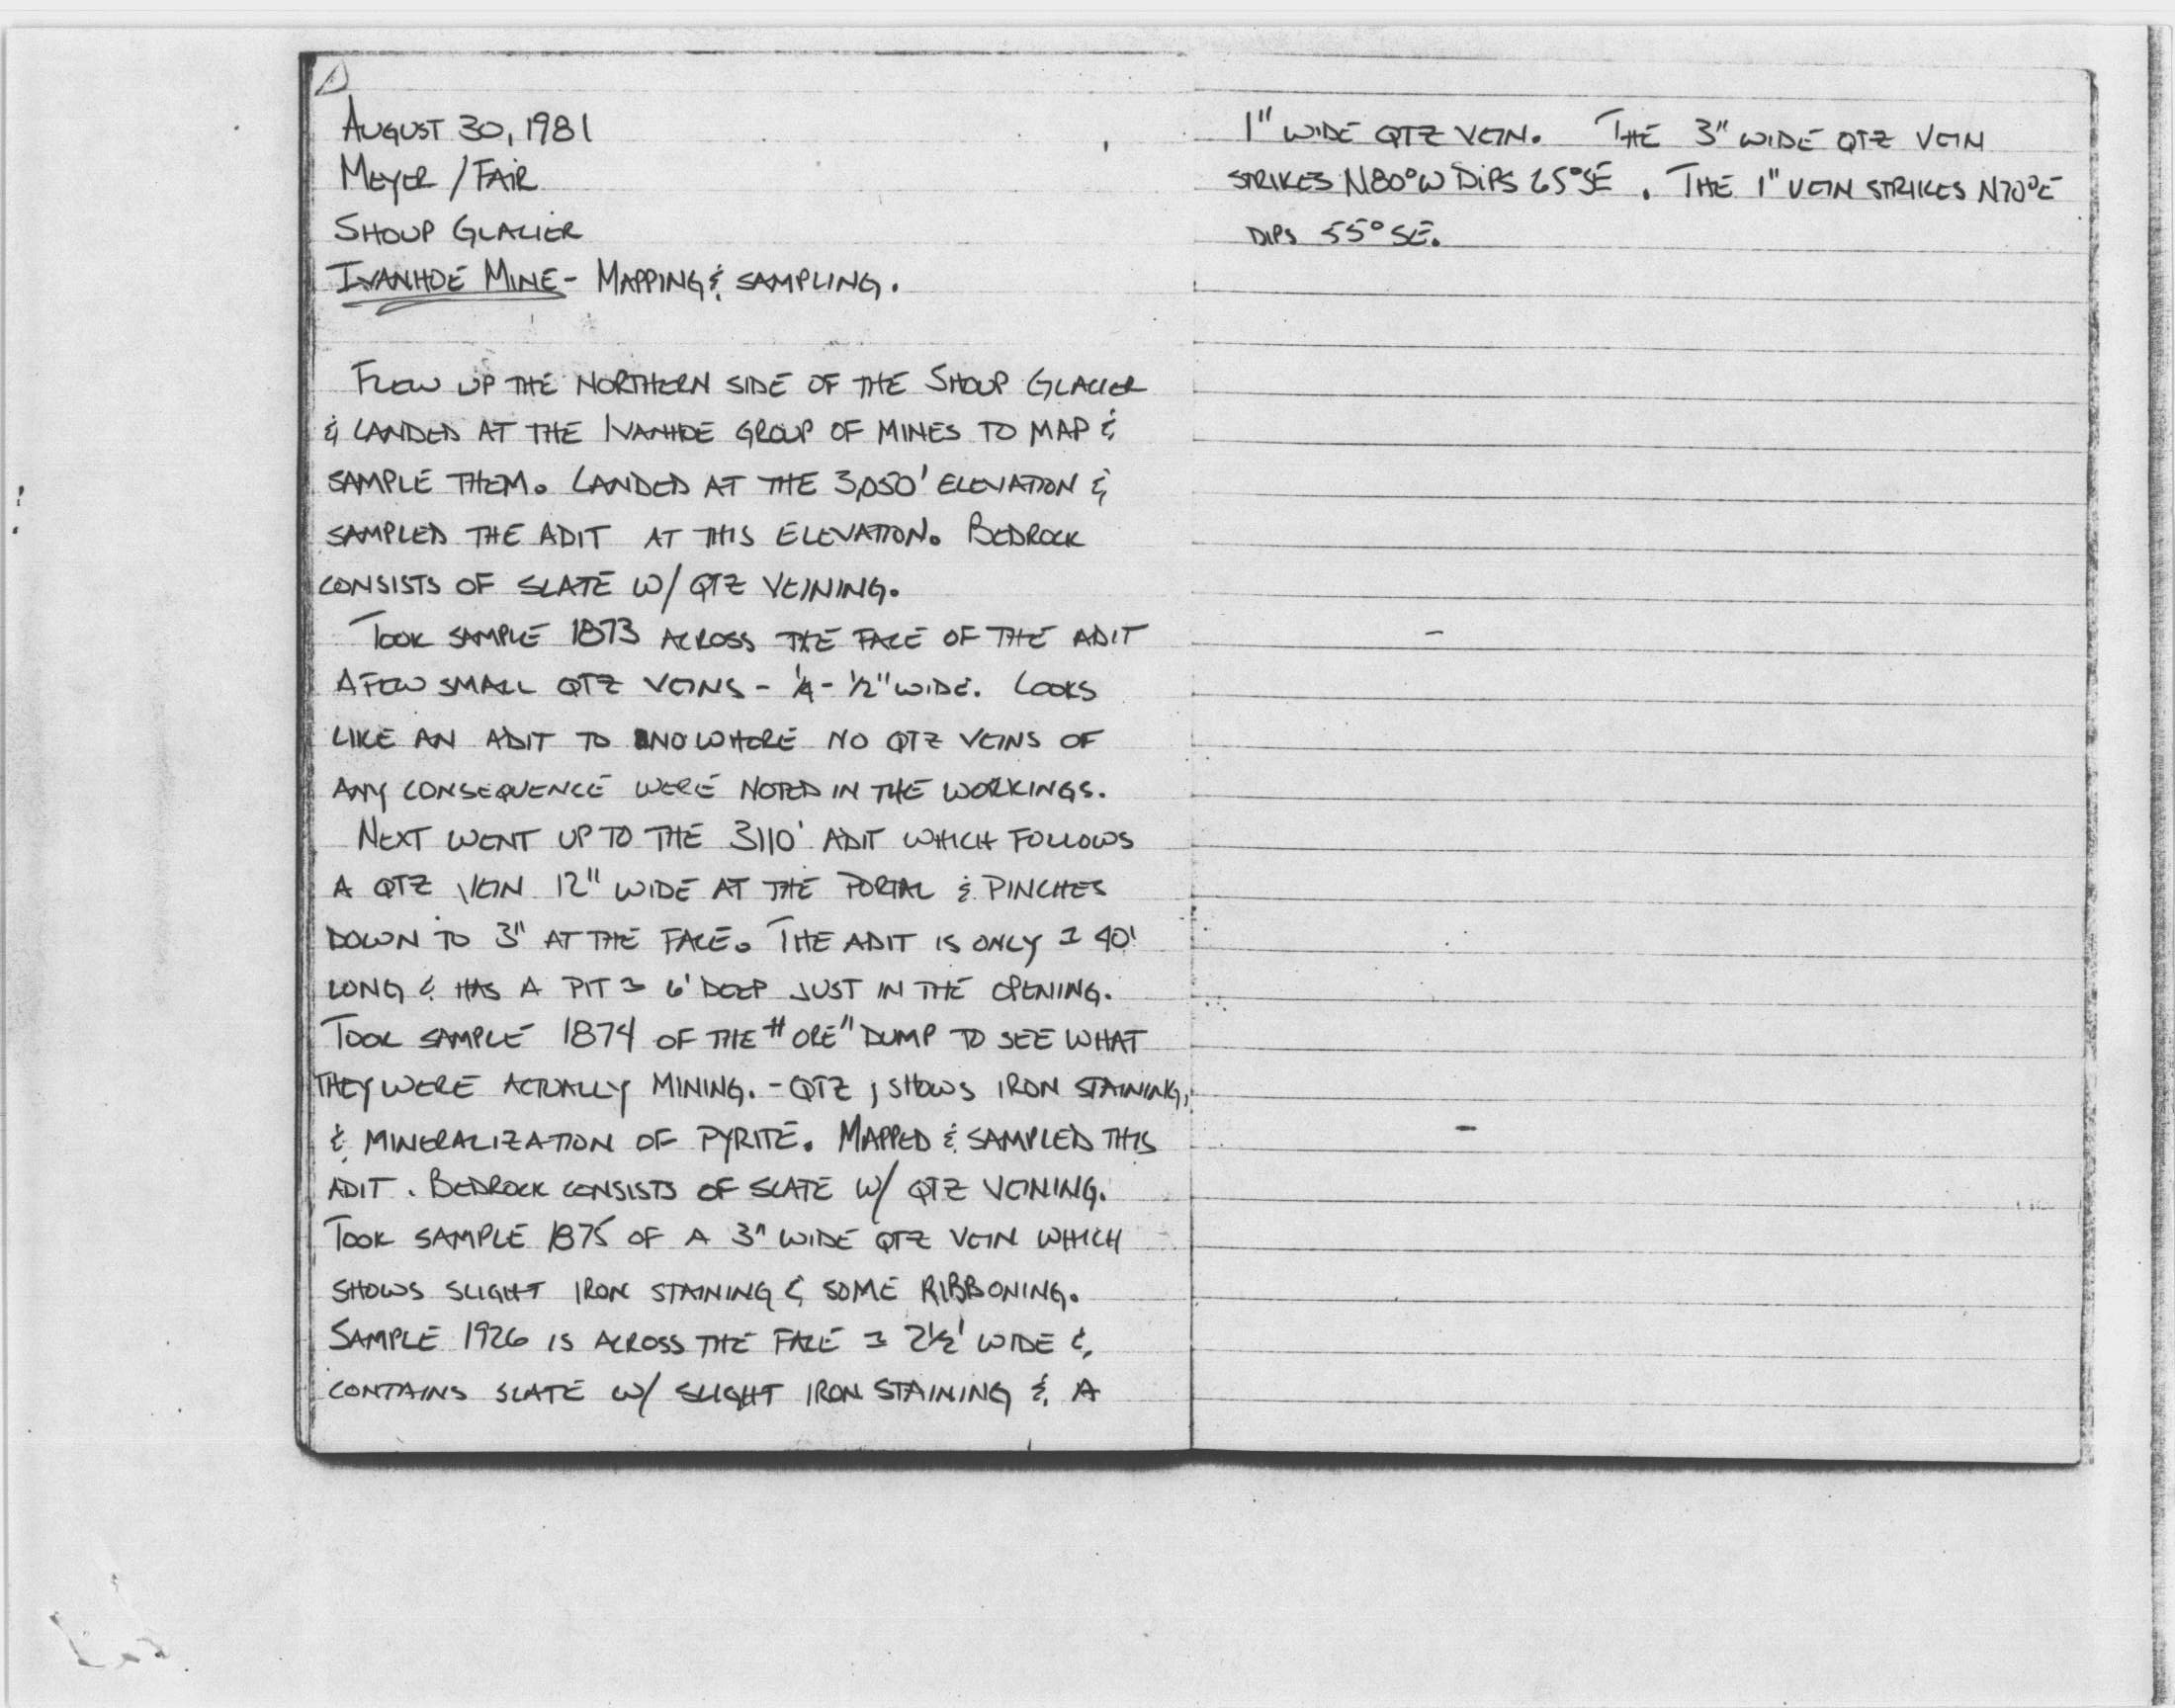 AUGUST 30, 1981
MEYER / FAIR
SHOUP GLACIER
IVANHOE MINE - MAPPING & SAMPLING.
FLEW UP THE NORTHERN SIDE OF THE SHOUP GLACIER
& LANDED AT THE IVANHOE GROUP OF MINES TO MAP &
SAMPLE THEM. LANDED AT THE 3,050' ELEVATION &
SAMPLED THE ADIT AT THIS ELEVATION. BEDROCK
CONSISTS OF SLATE W/ QTZ VEINING.
TOOK SAMPLE 1873 ACROSS THE FACE OF THE ADIT
A FEW SMALL QTZ VEINS - 1/4 - 1/2" WIDE. LOOKS
LIKE AN ADIT TO NOWHERE NO QTZ VEINS OF
ANY CONSEQUENCE WERE NOTED IN THE WORKINGS.
NEXT WENT UP TO THE 3110' ADIT WHICH FOLLOWS
A QTZ VEIN 12" WIDE AT THE PORTAL & PINCHES
DOWN TO 3" AT THE FACE. THE ADIT IS ONLY ± 40'
LONG & HAS A PIT ± 6' DEEP JUST IN THE OPENING.
TOOK SAMPLE 1874 OF THE "ORE" DUMP TO SEE WHAT
THEY WERE ACTUALLY MINING. - QTZ, SHOWS IRON STAINING,
& MINERALIZATION OF PYRITE. MAPPED & SAMPLED THIS
ADIT. BEDROCK CONSISTS OF SLATE W/ QTZ VEINING.
TOOK SAMPLE 1875 OF A 3" WIDE QTZ VEIN WHICH
SHOWS SLIGHT IRON STAINING & SOME RIBBONING.
SAMPLE 1926 IS ACROSS THE FACE ± 2 1/2' WIDE &
CONTAINS SLATE W/ SLIGHT IRON STAINING & A
1" WIDE QTZ VEIN. THE 3" WIDE QTZ VEIN
STRIKES N80°W DIPS 65°SE. THE 1" VEIN STRIKES N70°E
DIPS 55°SE.